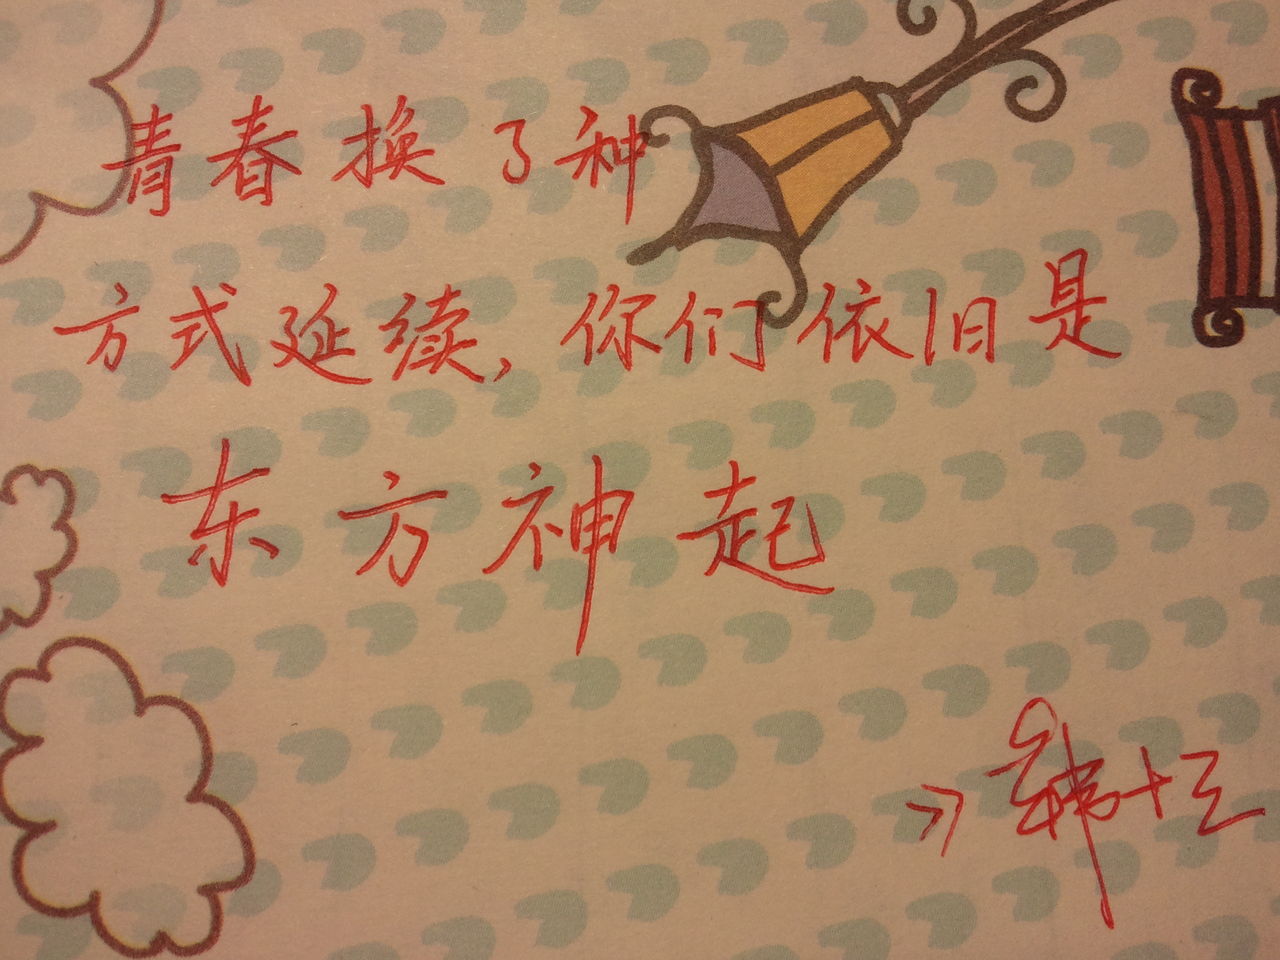 青春换了种
方式延续，你们依旧是
东方神起
》韩十三